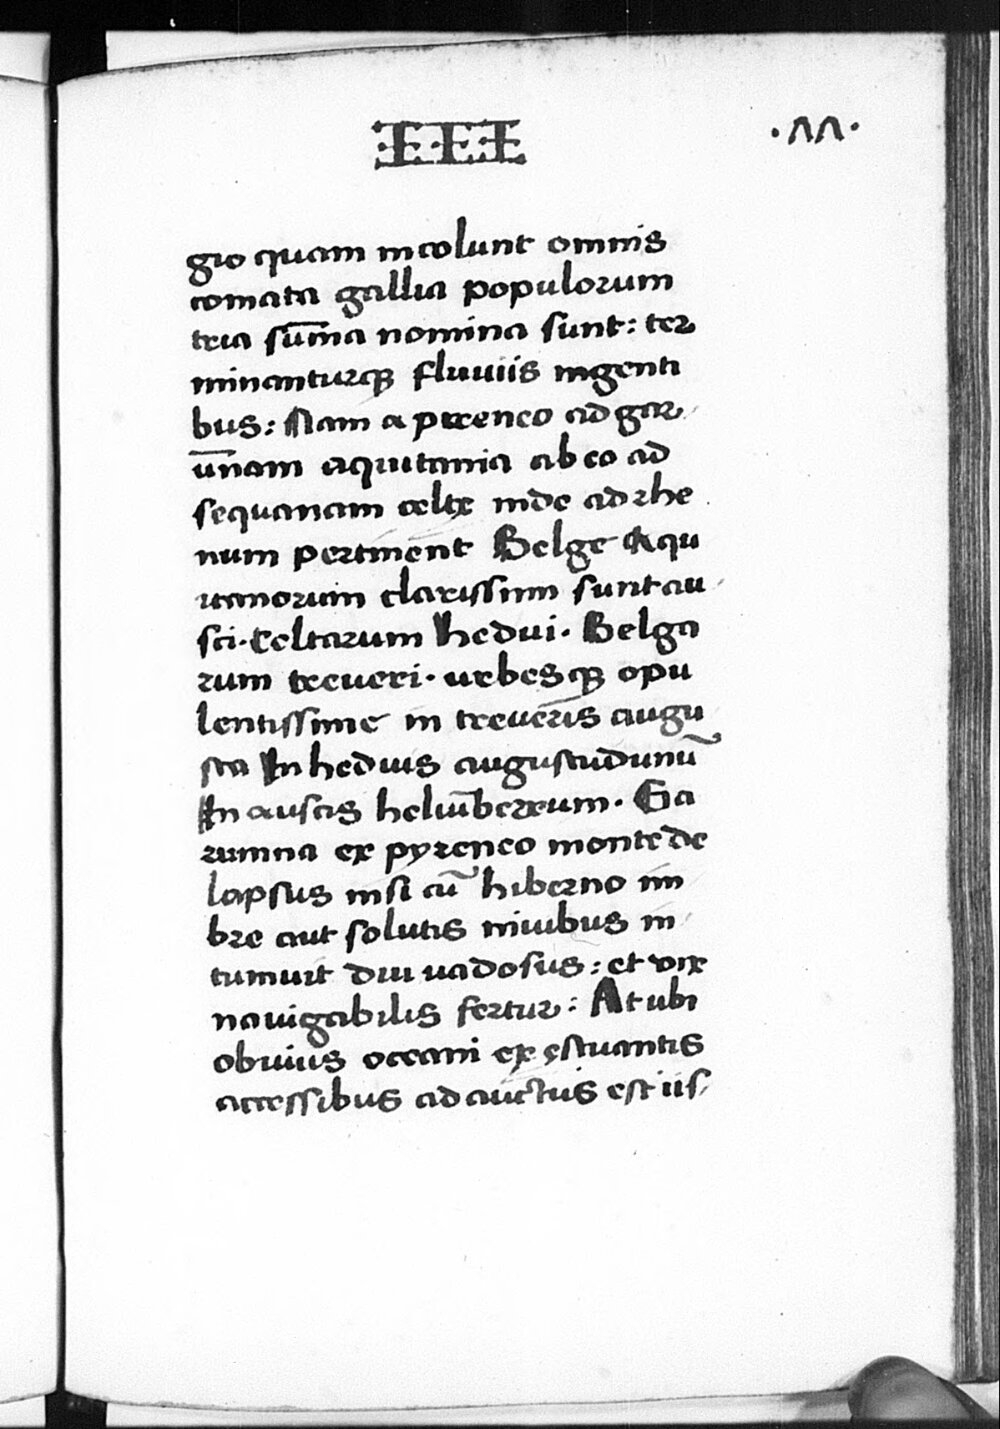 III .77.
gio quam incolunt omnis
comata gallia populorum
tria sum̄a nomina sunt: ter
minanturq̃ fluuiis ingenti
bus: Nam a pyreneo ad gar
ūnam aquitania ab eo ad
sequanam celtę inde ad rhe
num pertinent Belge Aqu
itanorum clarissimi sunt au
sci. Celtarum hedui. Belga
rum treueri. urbesq̃ opu
lentissime in treueris augu
sta In heduis augustudunũ
In auscis heliūberrum. Ga
rumna ex pyreneo monte de
lapsus nisi cũ hiberno im
bre aut solutis niuibus in
tumuit diu uadosus: et vix
nauigabilis fertur: At ubi
obuius oceani exęstuantis
accessibus adauctus est iis